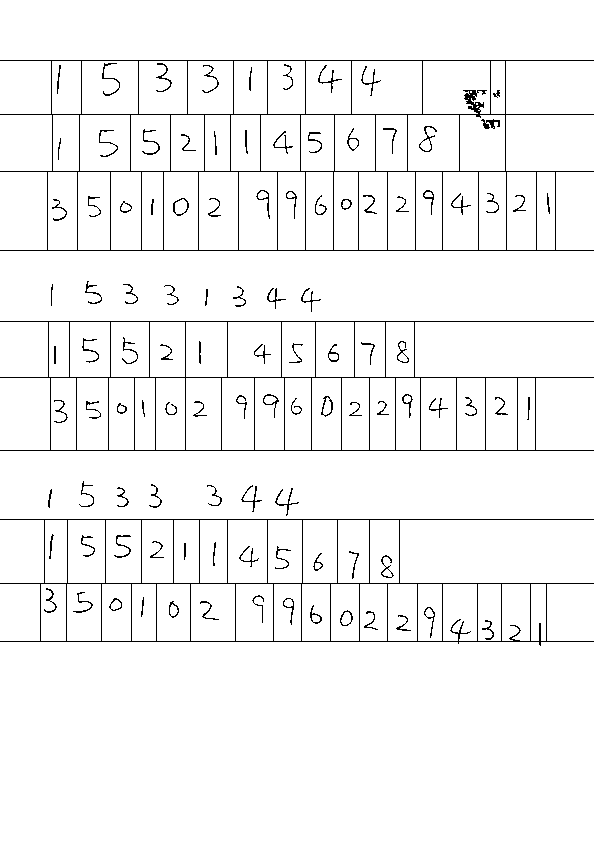 1 5 3 3 1 3 4 4
1 5 5 2 1 1 4 5 6 7 8
3 5 0 1 0 2 9 9 6 0 2 2 9 4 3 2 1
1 5 3 3 1 3 4 4
1 5 5 2 1 4 5 6 7 8
3 5 0 1 0 2 9 9 6 0 2 2 9 4 3 2 1
1 5 3 3 3 4 4
1 5 5 2 1 1 4 5 6 7 8
3 5 0 1 0 2 9 9 6 0 2 2 9 4 3 2 1